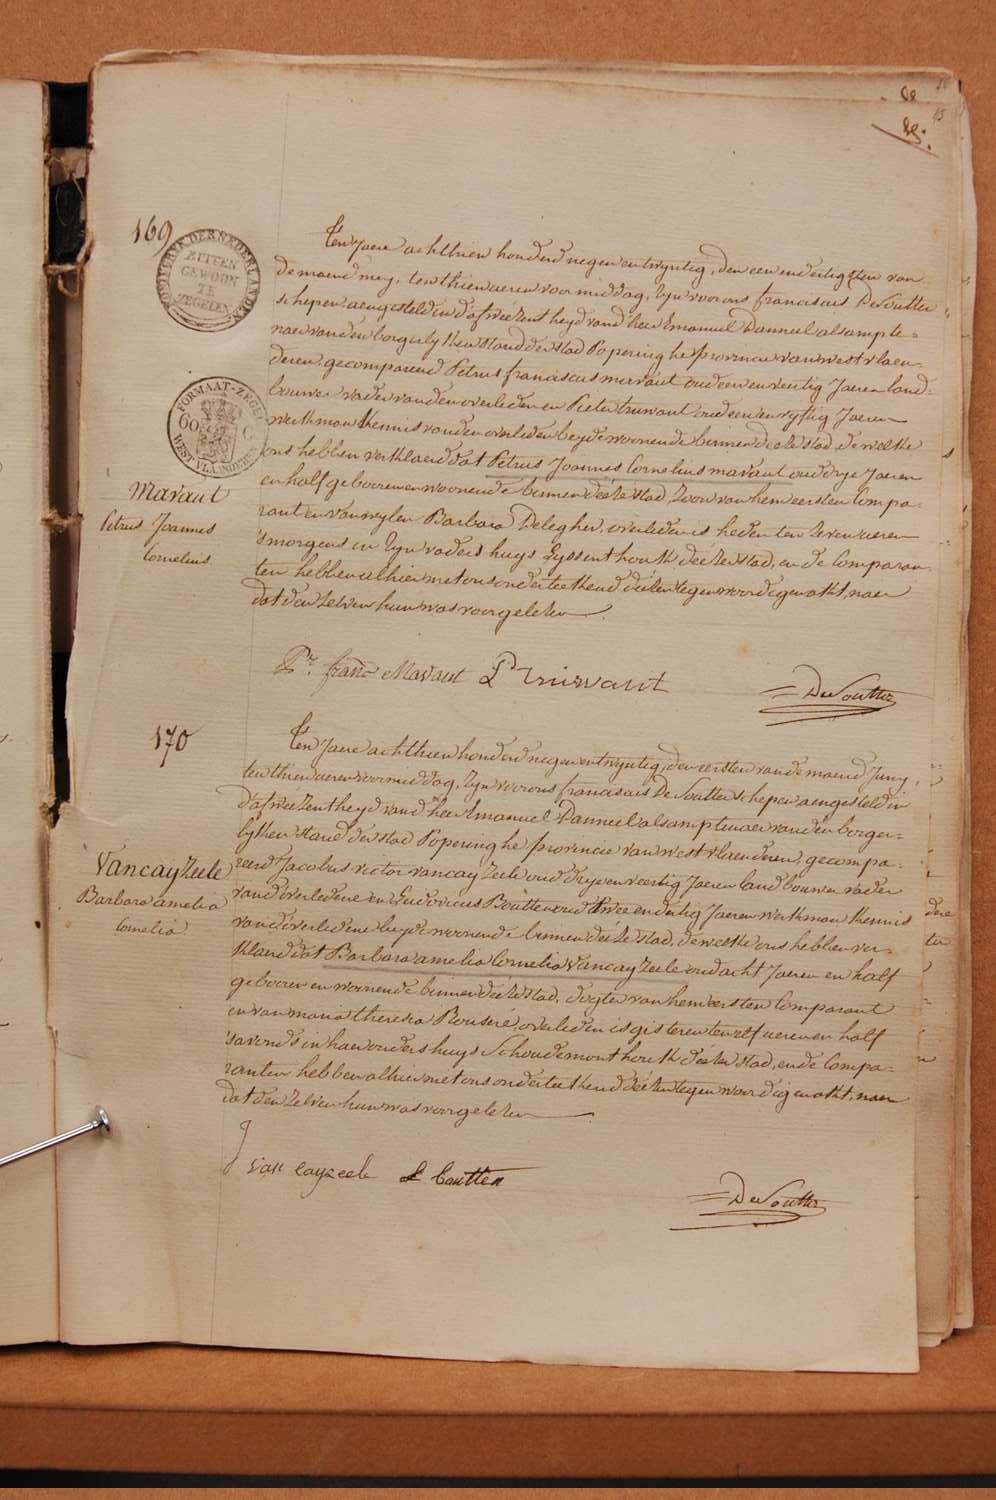 169
KONINGRYK DER NEDERLANDEN
BUITEN
GEWOON
TE
ZEGELEN
FORMAAT-ZEGEL
60 C
WEST VLAANDEREN
Mavaut
Petrus Joannes
Cornelius
Ten Jaere achthien honderd negen en twyntig, den een en dertigsten van
de maend mey, ten thien ueren voormiddag, Zyn voor ons franciscus De Soutter
schepen aengesteld in d'afweezentheyd van d'heer Emanuel Danneel als ampte=
naer van den borgerlyken stand der stad Poperinghe provincie van westvlaen-
deren, gecompareerd Petrus franciscus mavaut oud een en veertig Jaeren land-
bouwer vader van den overledenen en Pieter truwant oud een en vyftig Jaeren
werkman kennis van den overleden beyde woonende binnen deeze stad, de welke
ons hebben verklaerd dat Petrus Joannes Cornelius mavaut oud drye Jaeren
en half gebooren en woonende binnen deeze stad, Zoon van hem eersten Compa-
rant en van wylen Barbara Deleghen, overleden is heden ten zeven ueren
'smorgens in Zyn vaders huys Eyssenthoek deezer stad, en de Comparan-
ten hebben alhier met ons onderteekend deezen tegenwoordigen akt, naer
dat den Zelven hun was voorgelezen.
Pr. franc Mavaut P Truwant
De Soutter
170
Vancayzeele
Barbara amelia
Cornelia
Ten Jaere achthien honderd negen en twyntig, den eersten van de maend Juny,
ten thien ueren voormiddag, Zyn voor ons franciscus De Soutter schepen aengesteld in
d'afweezentheyd van d'heer Emanuel Danneel als amptenaer van den borger-
lyken stand der stad Poperinghe provincie van westvlaenderen, gecompa-
reerd Jacobus victor vancayzeele oud drye en veertig Jaeren landbouwer vader
van d'overledene en Ludovicus Boutten oud twee en dertig Jaeren werkman kennis
van d'overledene beyde woonende binnen deeze stad, de welke ons hebben ver-
klaerd dat Barbara amelia Cornelia Vancayzeele oud acht Jaeren en half
gebooren en woonende binnen deeze stad, dogter van hem eersten Comparant
en van maria theresia Rouseré, overleden is gisteren ten elf ueren en half
's avonds in haer ouders huys Schoudemonthoek deezer stad, en de Compa-
ranten hebben alhier met ons onderteekend deezen tegenwoordigen akt, naer
dat den Zelven hun was voorgelezen
J van cayzeele L boutten
De Soutter